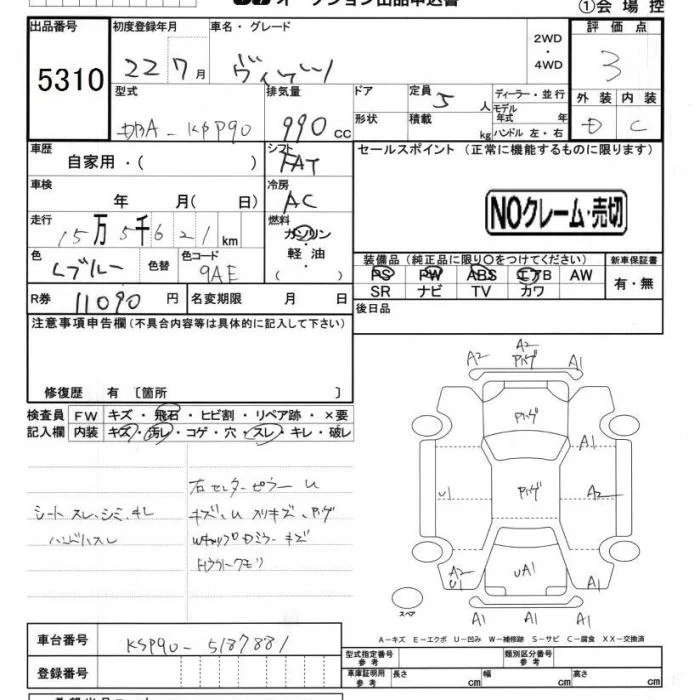 オークション出品申込書
①会場控
出品番号 初度登録年月 車名・グレード 2WD・4WD 評価点
5310 22 7月 ヴィッツ 3
型式 排気量 ドア 定員 5人 ディーラー・並行 外装 内装
DBA-KSP90 990cc 形状 積載 kg モデル年式 年 ハンドル 左・右 D C
車歴 シフト セールスポイント (正常に機能するものに限ります)
自家用・( ) FAT
車検 冷房
年 月( 日) AC NOクレーム・売切
走行 燃料
15万5千621km ガソリン・軽油・( )
色 色替 色コード 装備品(純正品に限り○をつけてください) 新車保証書
Lブルー 9AE PS PW ABS エアB AW 有・無
SR ナビ TV カワ
R券 11090円 名変期限 月 日 後日品
注意事項申告欄(不具合内容等は具体的に記入して下さい)
修復歴 有 〔箇所 〕
検査員 FW キズ・飛石・ヒビ割・リペア跡・×要
記入欄 内装 キズ・汚レ・コゲ・穴・スレ・キレ・破レ
右センターピラーU
シートスレ、シミ、キレ キズ、U スリキズ、ハゲ
ハンドルスレ WキャップDミラーキズ
Hライトクモリ
A2 A2 ハゲ A1
ハゲ
A1
U1 ハゲ A2
A2 U UA1 A1
A1 A1 A1
スペア
A-キズ E-エクボ U-凹み W-補修跡 S-サビ C-腐食 XX-交換済
車台番号 KSP90-5187881 型式指定番号 参考 類別区分番号 参考
登録番号 車庫証明用 参考 長さ cm 幅 cm 高さ cm